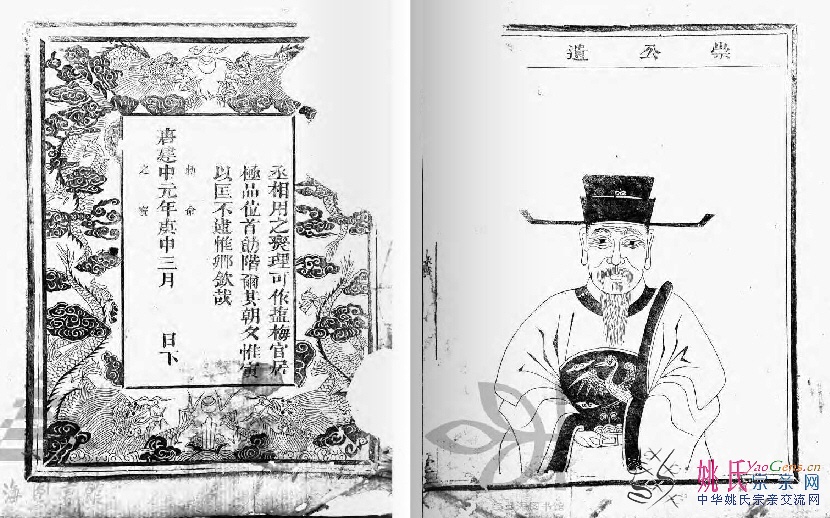 崇公遺
丞相用之燮理可作塩梅官居
極品位首勛階爾其朝夕惟寅
以匡不逮惟卿欽哉
勅命
之寶
唐建中元年庚申三月 日下
姚氏 YaoGens.cn
宗亲网
中华姚氏宗亲交流网